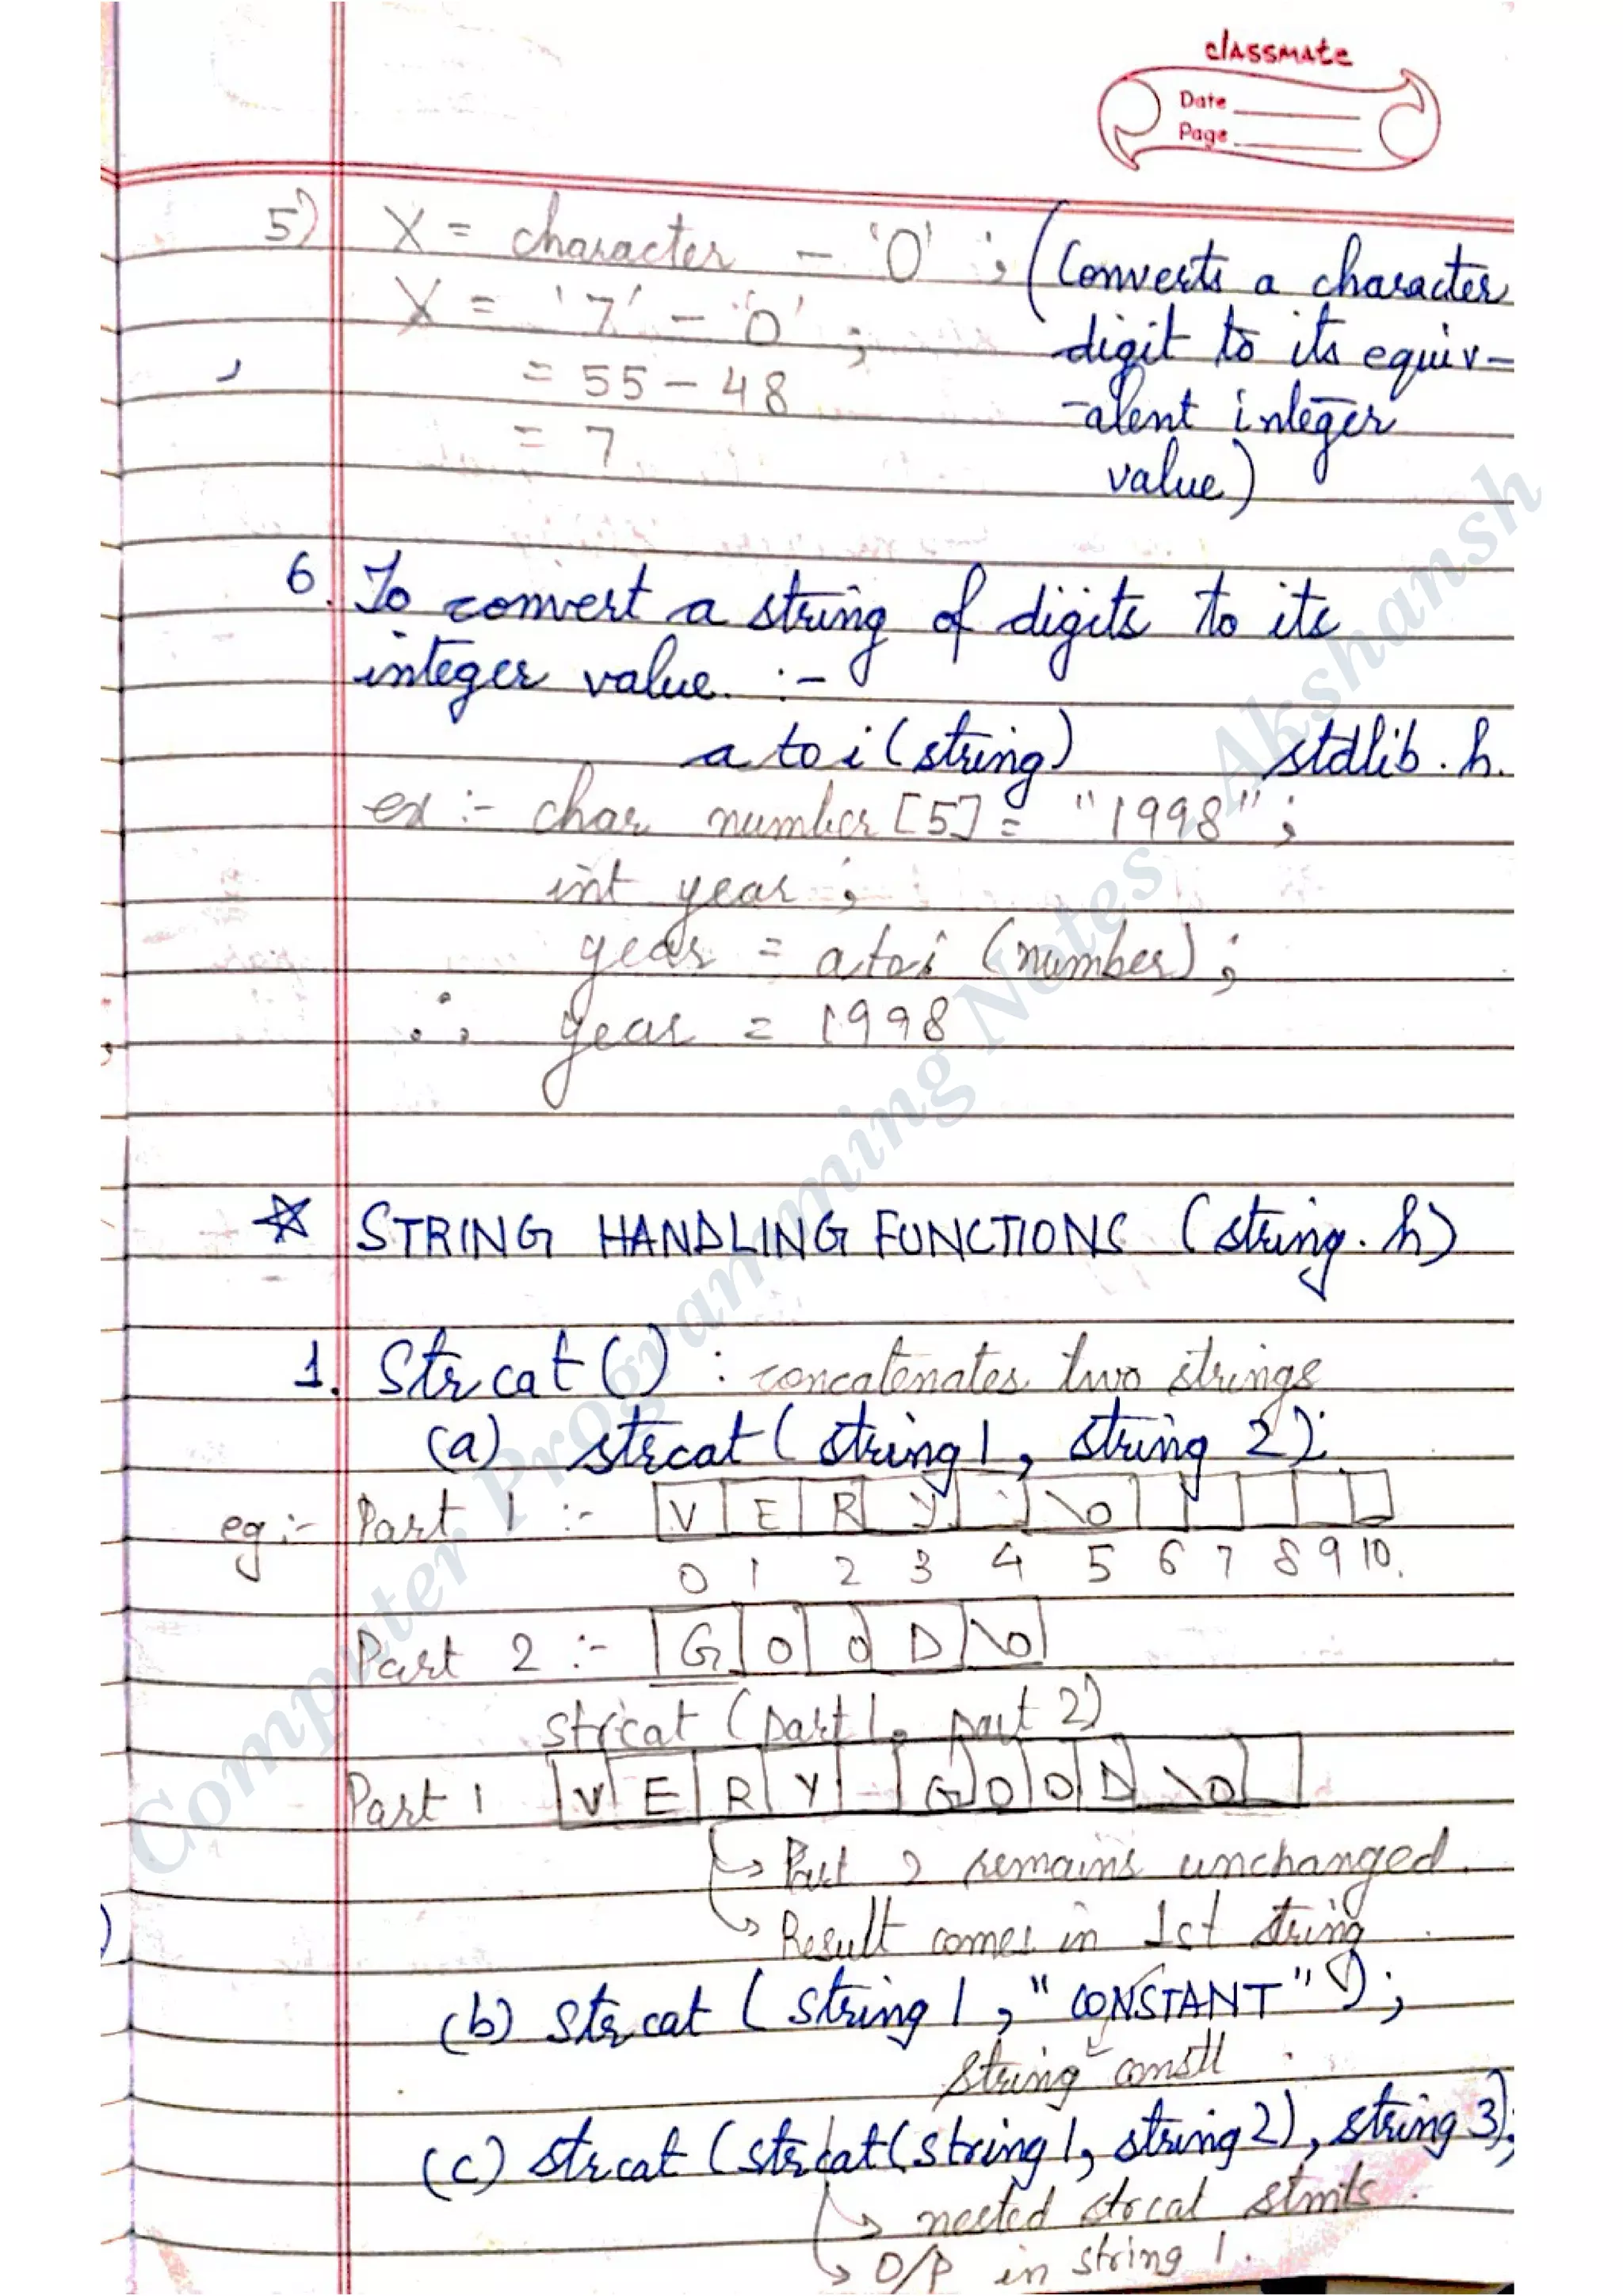 classmate
Date
Page
5) X = character - '0' ; (Converts a character
X = '7' - '0' ; digit to its equiv-
= 55 - 48 -alent integer
= 7 value)
6. To convert a string of digits to its
integer value. :-
atoi (string) stdlib.h.
ex :- char number [5] = "1998" ;
int year ;
year = atoi (number) ;
∴ year = 1998
☆ STRING HANDLING FUNCTIONS (string.h)
1. Strcat () : concatenates two strings
(a) strcat ( string 1, string 2);
eg :- Part 1 :- V E R Y \0
0 1 2 3 4 5 6 7 8 9 10.
Part 2 :- G O O D \0
strcat (part 1, part 2)
Part 1 V E R Y G O O D \0
↳ Part 2 remains unchanged.
↳ Result comes in 1st string.
(b) strcat ( string 1, "CONSTANT" );
string constt.
(c) strcat (strcat(string 1, string 2), string 3);
↳ nested strcat stmts.
↳ O/P in string 1.
Computer Programming Notes Akshansh